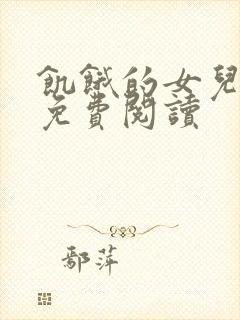 飢餓的女兒
免費閱讀
鄢萍